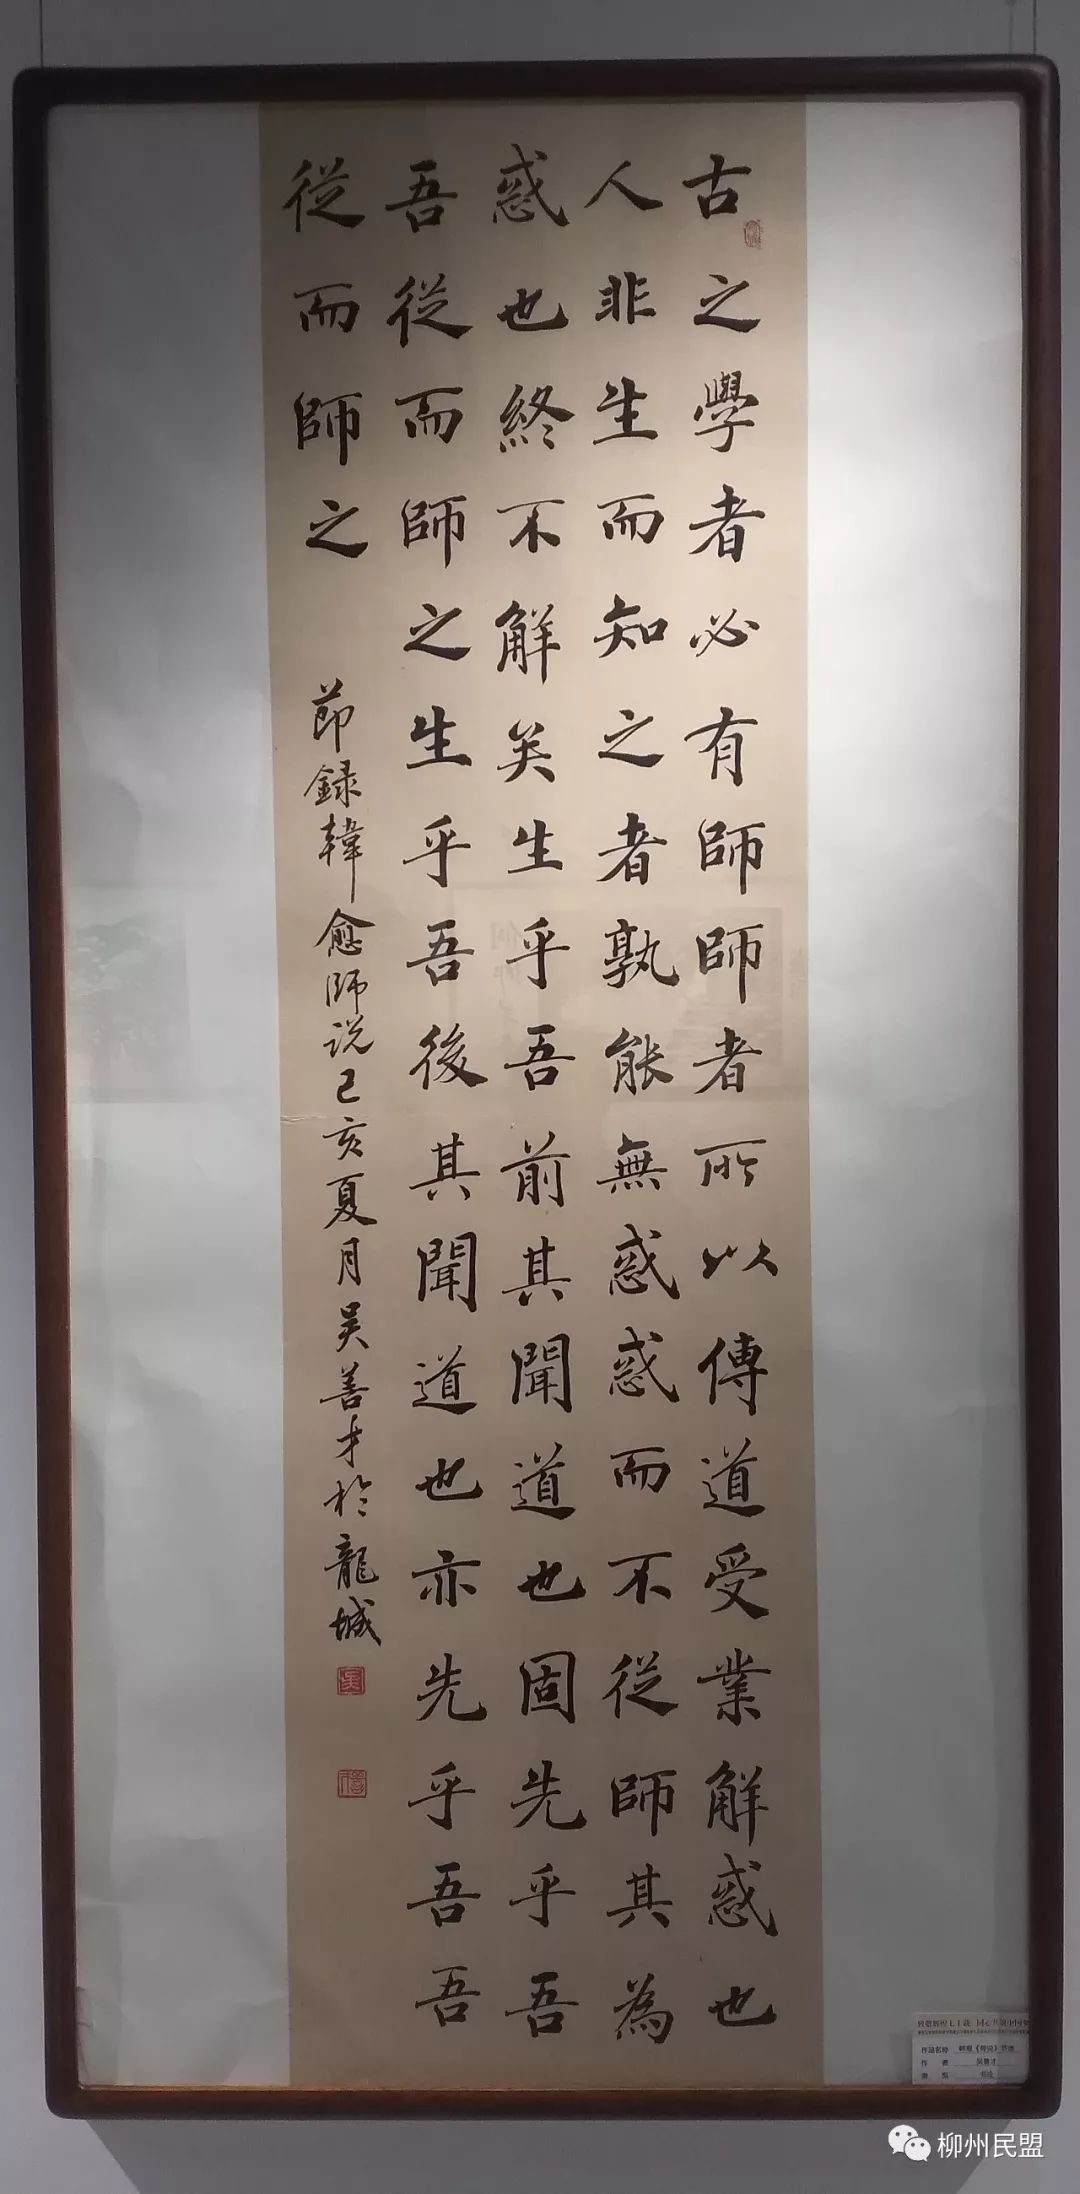 古之學者必有師師者所以傳道受業解惑也
人非生而知之者孰能無惑惑而不從師其為
惑也終不解矣生乎吾前其聞道也固先乎吾
吾從而師之生乎吾後其聞道也亦先乎吾吾
從而師之
節録韓愈師说己亥夏月吴善才於龍城
作品名称 韩愈《师说》节选
作者 吴善才
类别 书法
柳州民盟